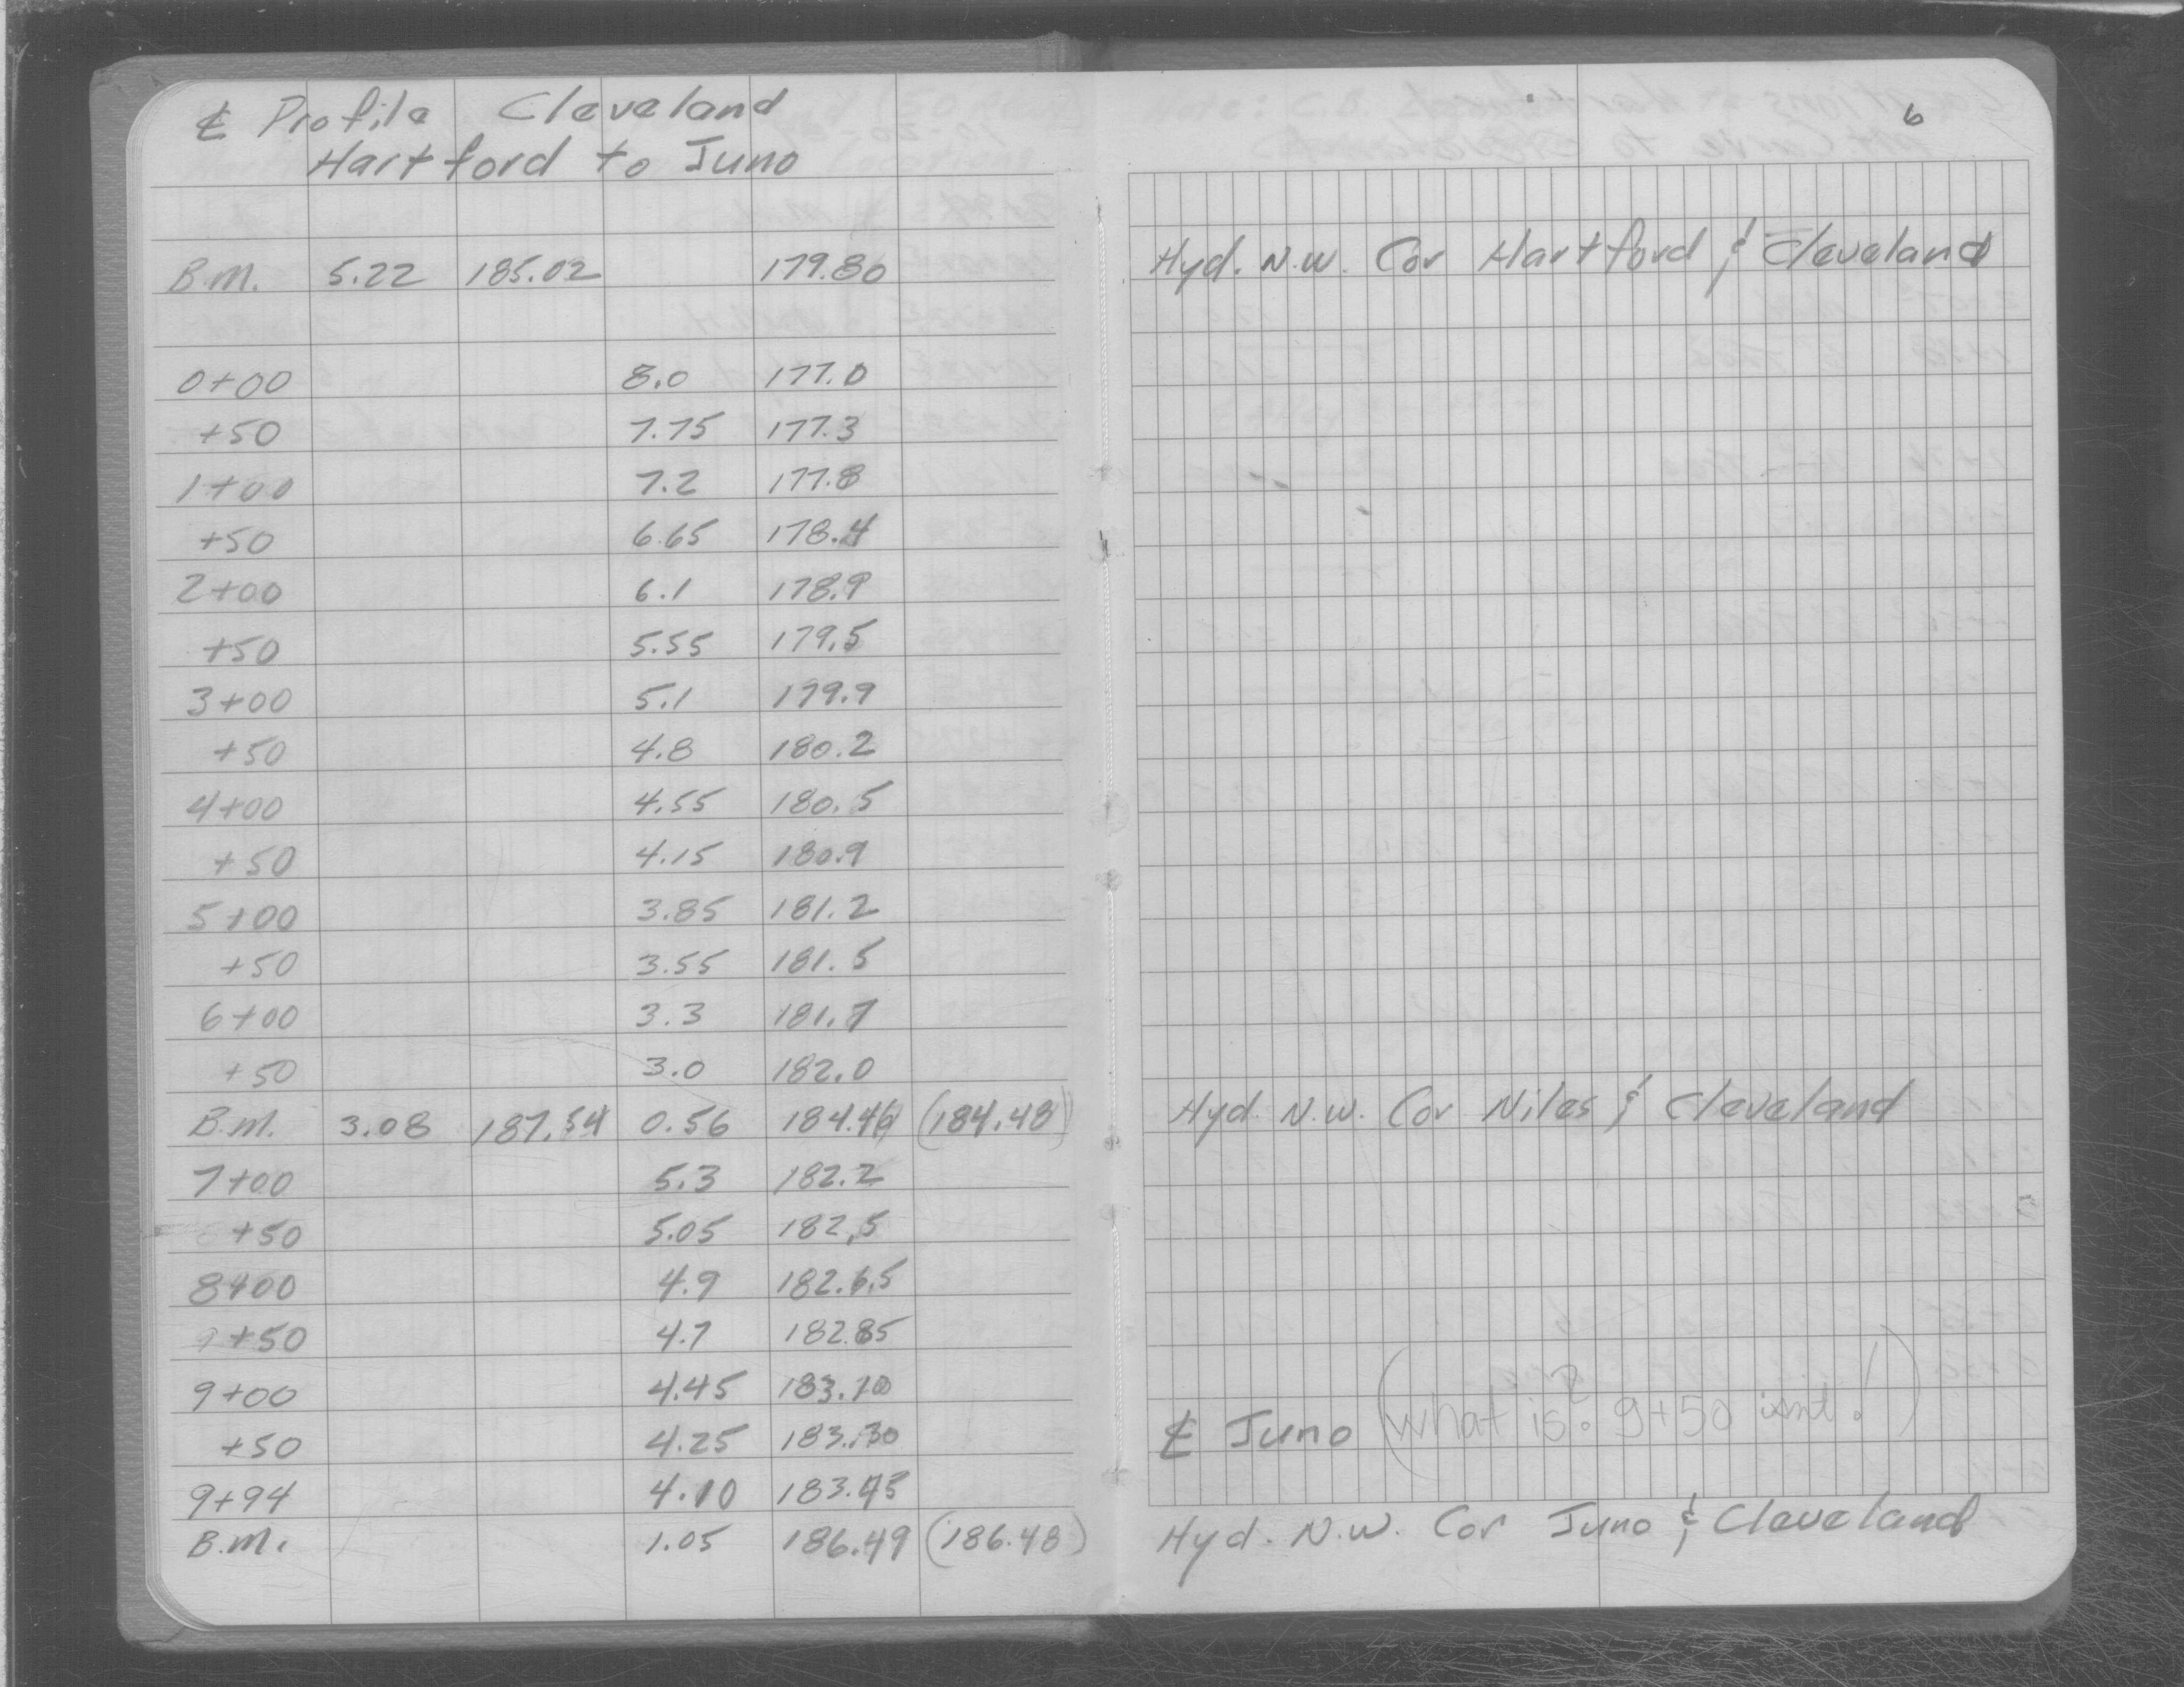 ℄ Profile Cleveland
Hartford to Juno
B.M. 5.22 185.02 179.80
0+00 8.0 177.0
+50 7.75 177.3
1+00 7.2 177.8
+50 6.65 178.4
2+00 6.1 178.9
+50 5.55 179.5
3+00 5.1 179.9
+50 4.8 180.2
4+00 4.55 180.5
+50 4.15 180.9
5+00 3.85 181.2
+50 3.55 181.5
6+00 3.3 181.7
+50 3.0 182.0
B.M. 3.08 187.54 0.56 184.46 (184.48)
7+00 5.3 182.2
+50 5.05 182.5
8+00 4.9 182.6.5
+50 4.7 182.85
9+00 4.45 183.10
+50 4.25 183.30
9+94 4.10 183.45
B.M. 1.05 186.49 (186.48)
6
Hyd. N.W. Cor Hartford & Cleveland
Hyd. N.W. Cor Niles & Cleveland
℄ Juno (what is? 9+50 isnt!)
Hyd. N.W. Cor Juno & Cleveland